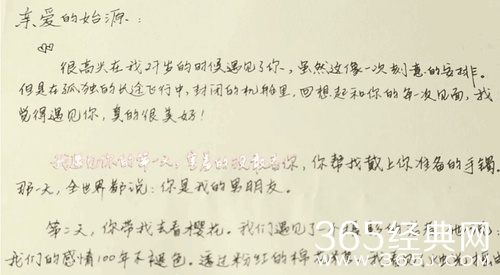 亲爱的始源：
很高兴在我27岁的时候遇见了你，虽然这像一次刻意的安排。
但是在孤独的长途飞行中，封闭的机舱里，回想起和你的每一次见面，我
觉得遇见你，真的很美好！
我遇见你的第一天，害羞的没敢看你，你帮我戴上你准备的手镯。
那一天，全世界都说：你是我的男朋友。
第二天，你带我去看樱花。我们遇见了一
我们的感情100年不褪色。透过粉红的棉
365经典网
365JZ.COM